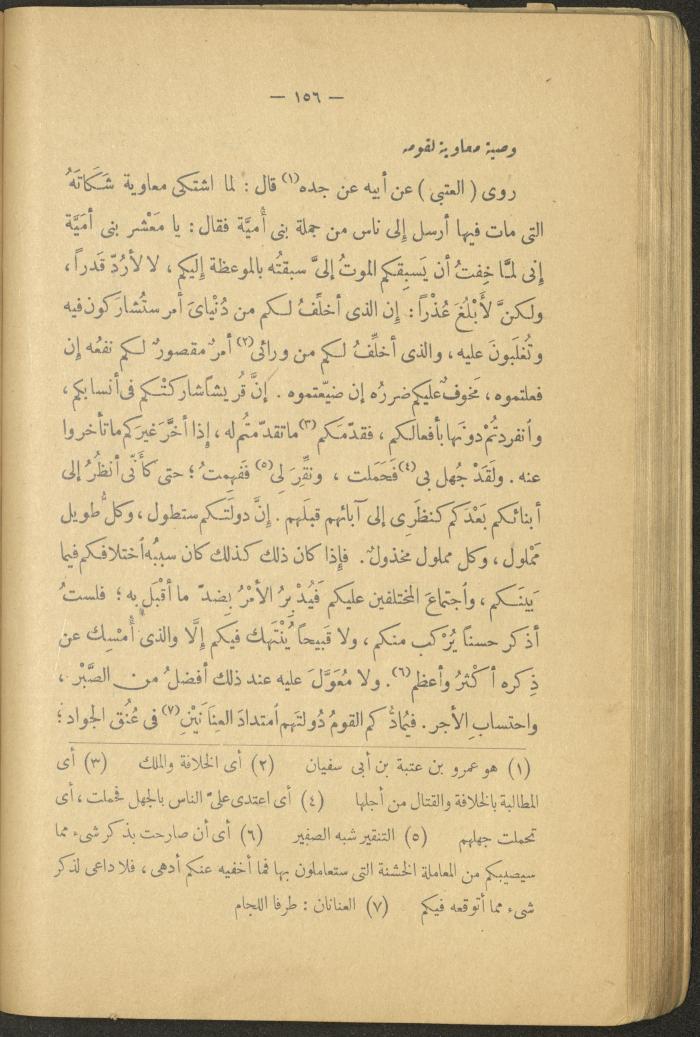 — ١٥٦ —
وصية معاوية لقومه
روى ( العتبى ) عن أبيه عن جده(١) قال : لما اشتكى معاوية شَكَاتَهُ
التى مات فيها أرسل إلى ناس من جملة بنى أُميَّة فقال : يا مَعْشر بنى أمَيَّة
إنى لمَّا خِفتُ أن يَسبِقكم الموتُ إلىَّ سبقتُه بالموعظة إليكم ، لا لأرُدّ قَدراً ،
ولكنَّ لأَبْلُغَ عُذْراً : إن الذى أخلِّفُ لكم من دُنْياىَ أمر ستُشاركون فيه
وتُغلَبونَ عليه ، والذى أخلِّفُ لكم من ورائى(٢) أمرٌ مقصورٌ لكم نفعُه إن
فعلتموه ، مَخوفٌ عليكم ضررُه إن ضيّعتموه . إنَّ قُريشاً شاركتْكم فى أنسابكم ،
وانفردتُمْ دونَها بأفعالكم ، فقدّمَكم(٣) ما تقدّمتُم له ، إذا أخَّرَ غيرَكم ما تأخروا
عنه . ولَقَدْ جُهل بى(٤) فَحَملت ، ونقِّرَ لى(٥) ففهمتُ ؛ حتى كأنّى أنظُرُ إلى
أبنائكم بَعْدَكم كنظَرِى إلى آبائهم قبلَهم . إنَّ دولتَكم ستطول ، وكلُّ طويل
مَمْلول ، وكل مملول مخذولٌ . فإذا كان ذلك كذلك كان سببُه اختلافكم فيما
بَينَكم ، واجتماعَ المختلفين عليكم فَيُدْبِرُ الأمْرُ بِضدّ ما أقْبَل به ؛ فلستُ
أذكر حسناً يُرْكب منكم ، ولا قَبيحاً يُنْتَهك فيكم إلَّا والذى أُمْسِك عن
ذِكره أكثرُ وأعظم(٦) . ولا مُعَوَّلَ عليه عند ذلك أفضلُ من الصَّبْر ،
واحتسابِ الأجر . فيُمَادُّكم القومُ دُولتَهم امتدادَ العِنَانَيْنِ(٧) فى عُنُق الجواد ؛
(١) هو عمرو بن عتبة بن أبى سفيان (٢) أى الخلافة والملك (٣) أى
المطالبة بالخلافة والقتال من أجلها (٤) أى اعتدى علىّ الناس بالجهل فحملت ، أى
تحملت جهلهم (٥) التنقير شبه الصفير (٦) أى أن صارحت بذكر شىء مما
سيصيبكم من المعاملة الخشنة التى ستعاملون بها فما أخفيه عنكم أدهى ، فلا داعى لذكر
شىء مما أتوقعه فيكم (٧) العنانان : طرفا اللجام